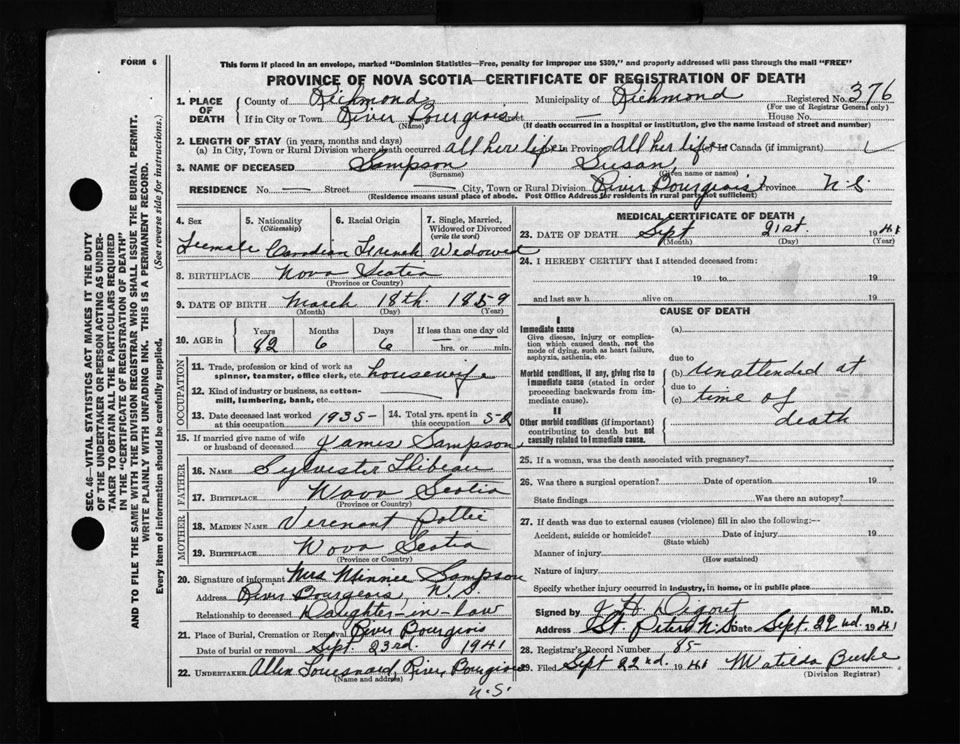 FORM 6
This form if placed in an envelope, marked "Dominion Statistics—Free, penalty for improper use $300," and properly addressed will pass through the mail "FREE"
PROVINCE OF NOVA SCOTIA—CERTIFICATE OF REGISTRATION OF DEATH
SEC. 46—VITAL STATISTICS ACT MAKES IT THE DUTY
OF THE UNDERTAKER OR PERSON ACTING AS UNDER-
TAKER TO OBTAIN ALL THE PARTICULARS REQUIRED
IN THE "CERTIFICATE OF REGISTRATION OF DEATH"
AND TO FILE THE SAME WITH THE DIVISION REGISTRAR WHO SHALL ISSUE THE BURIAL PERMIT.
WRITE PLAINLY WITH UNFADING INK. THIS IS A PERMANENT RECORD.
Every item of information should be carefully supplied. (See reverse side for instructions.)
1. PLACE OF DEATH
County of Richmond Municipality of Richmond Registered No. 376
(For use of Registrar General only)
If in City or Town River Bourgeois Street — House No.
(Name) (If death occurred in a hospital or institution, give the name instead of street and number)
2. LENGTH OF STAY (in years, months and days)
(a) In City, Town or Rural Division where death occurred all her life In Province All her life In Canada (if immigrant)
3. NAME OF DECEASED Sampson Susan
(Surname) (Given name or names)
RESIDENCE No. — Street — City, Town or Rural Division River Bourgeois Province N.S.
(Residence means usual place of abode. Post Office Address for residents in rural parts not sufficient)
4. Sex 5. Nationality 6. Racial Origin 7. Single, Married,
(Citizenship) Widowed or Divorced
(write the word)
Female Canadian French Widowed
8. BIRTHPLACE Nova Scotia
(Province or Country)
9. DATE OF BIRTH March 18th. 1859
(Month) (Day) (Year)
10. AGE in Years Months Days If less than one day old
82 6 6 — hrs. or — min.
OCCUPATION
11. Trade, profession or kind of work as
spinner, teamster, office clerk, etc. housewife
12. Kind of industry or business, as cotton-
mill, lumbering, bank, etc.
13. Date deceased last worked at this occupation 1935- 14. Total yrs. spent in this occupation 52
15. If married give name of wife
or husband of deceased James Sampson
FATHER
16. NAME Sylvester
17. BIRTHPLACE Nova Scotia
(Province or Country)
MOTHER
18. MAIDEN NAME Pottie
19. BIRTHPLACE Nova Scotia
(Province or Country)
20. Signature of informant Mrs Minnie Sampson
Address River Bourgeois, N.S.
Relationship to deceased Daughter-in-law
21. Place of Burial, Cremation or Removal River Bourgeois
Date of burial or removal Sept. 23rd. 1941
22. UNDERTAKER Allen River Bourgeois
(Name and address) N.S.
MEDICAL CERTIFICATE OF DEATH
23. DATE OF DEATH Sept 21st. 1941
(Month) (Day) (Year)
24. I HEREBY CERTIFY that I attended deceased from:
19 to 19
and last saw h alive on 19
CAUSE OF DEATH
I
Immediate cause
Give disease, injury or complica-
tion which caused death, not the
mode of dying, such as heart failure,
asphyxia, asthenia, etc.
Morbid conditions, if any, giving rise to
immediate cause (stated in order
proceeding backwards from im-
mediate cause).
II
Other morbid conditions (if important)
contributing to death but not
causally related to immediate cause.
(a)
due to
(b) Unattended at
due to
(c) time of
death
25. If a woman, was the death associated with pregnancy?
26. Was there a surgical operation? Date of operation 19
State findings Was there an autopsy?
27. If death was due to external causes (violence) fill in also the following:—
Accident, suicide or homicide? Date of injury 19
(State which)
Manner of injury
(How sustained)
Nature of injury
Specify whether injury occurred in industry, in home, or in public place
Signed by Digout M.D.
Address St. Peters N.S. Date Sept. 22nd. 1941
28. Registrar's Record Number 85
29. Filed Sept 22nd. 1941 Matilda Burke
(Division Registrar)